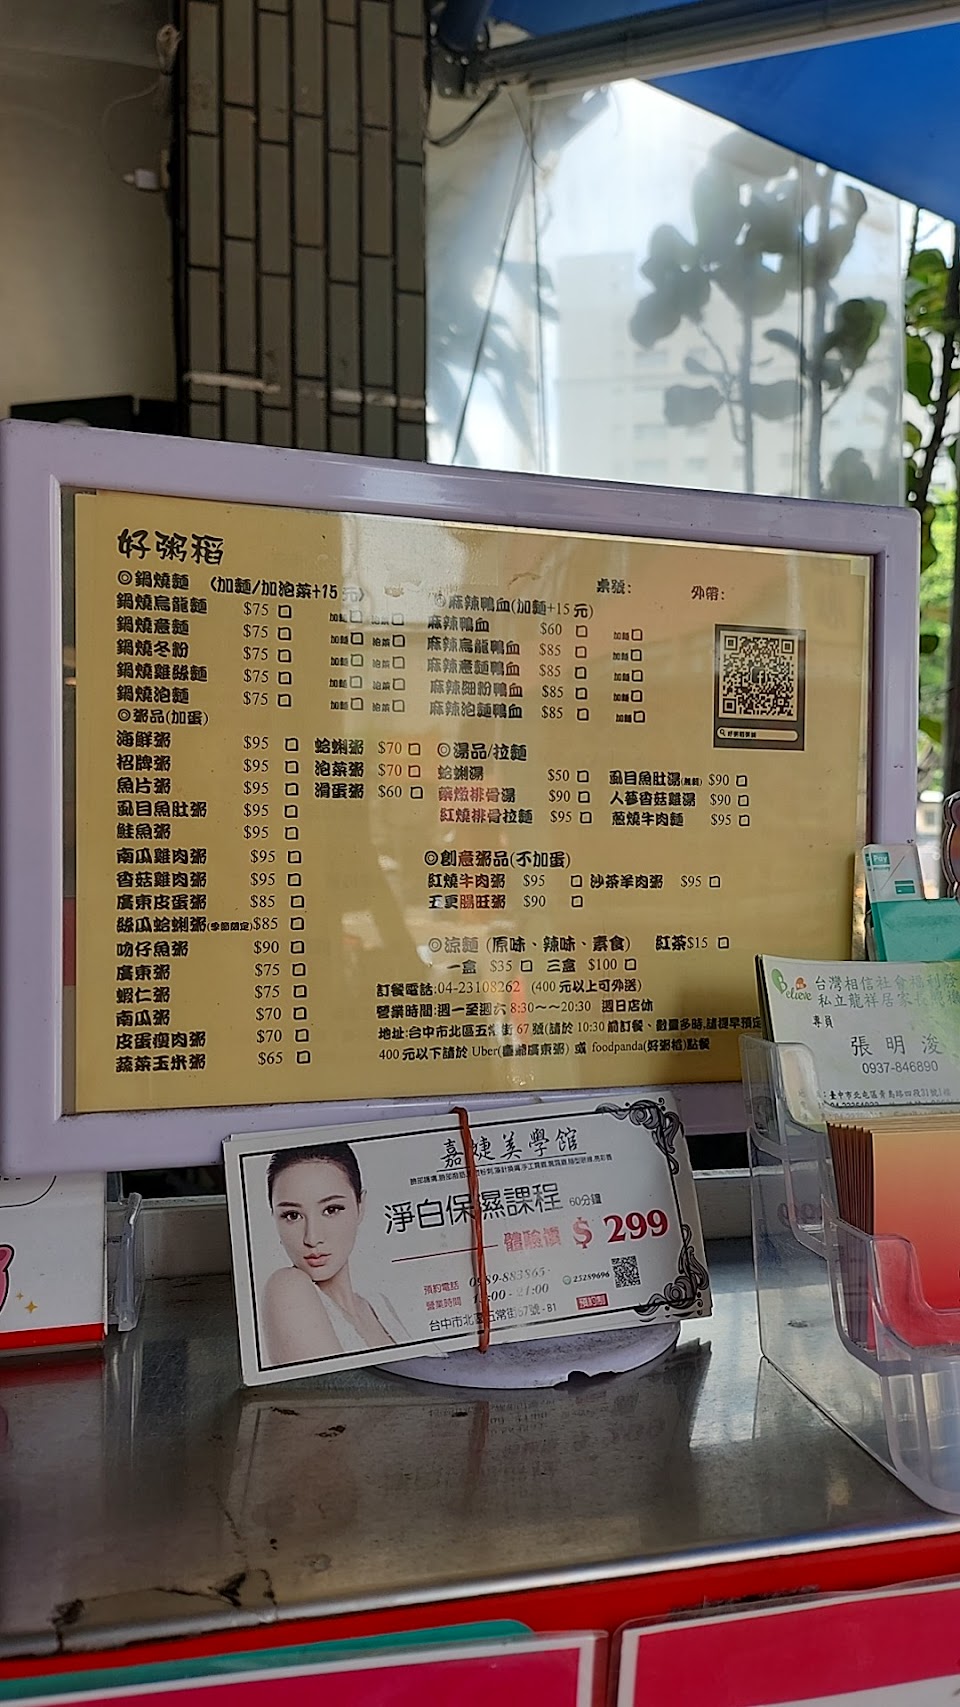 好粥稻
◎鍋燒麵 (加麵/加泡菜+15元)
鍋燒烏龍麵 $75 □ 加麵□ 泡菜□
鍋燒意麵 $75 □ 加麵□ 泡菜□
鍋燒冬粉 $75 □ 加麵□ 泡菜□
鍋燒雞絲麵 $75 □ 加麵□ 泡菜□
鍋燒泡麵 $75 □ 加麵□ 泡菜□
◎粥品(加蛋)
海鮮粥 $95 □
招牌粥 $95 □
魚片粥 $95 □
虱目魚肚粥 $95 □
鮭魚粥 $95 □
南瓜雞肉粥 $95 □
香菇雞肉粥 $95 □
廣東皮蛋粥 $85 □
絲瓜蛤蜊粥(季節限定)$85 □
吻仔魚粥 $90 □
廣東粥 $75 □
蝦仁粥 $75 □
南瓜粥 $70 □
皮蛋瘦肉粥 $70 □
蔬菜玉米粥 $65 □
蛤蜊粥 $70 □
泡菜粥 $70 □
滑蛋粥 $60 □
桌號: 外帶:
麻辣鴨血(加麵+15元)
麻辣鴨血 $60 □ 加麵□
麻辣烏龍鴨血 $85 □ 加麵□
麻辣意麵鴨血 $85 □ 加麵□
麻辣細粉鴨血 $85 □ 加麵□
麻辣泡麵鴨血 $85 □ 加麵□
◎湯品/拉麵
蛤蜊湯 $50 □ 虱目魚肚湯 $90 □
藥燉排骨湯 $90 □ 人蔘香菇雞湯 $90 □
紅燒排骨拉麵 $95 □ 蔥燒牛肉麵 $95 □
◎創意粥品(不加蛋)
紅燒牛肉粥 $95 □ 沙茶羊肉粥 $95 □
五更腸旺粥 $90 □
◎涼麵 (原味、辣味、素食) 紅茶$15 □
一盒 $35 □ 三盒 $100 □
訂餐電話:04-23108262 (400元以上可外送)
營業時間:週一至週六 8:30~~20:30 週日店休
地址:台中市北區五常街67號(請於10:30前訂餐、數量多時,請提早預定
400元以下請於 Uber(廣東粥) 或 foodpanda(好粥稻)點餐
嘉婕美學館
淨白保濕課程 60分鐘
體驗價 $ 299
預約電話 0989-883865
營業時間 :00 - 21:00
25289696
預約制
台中市北區五常街67號-B1
Pay
Believe
台灣相信社會福利
私立龍祥居家長
專員
張明浚
0937-846890